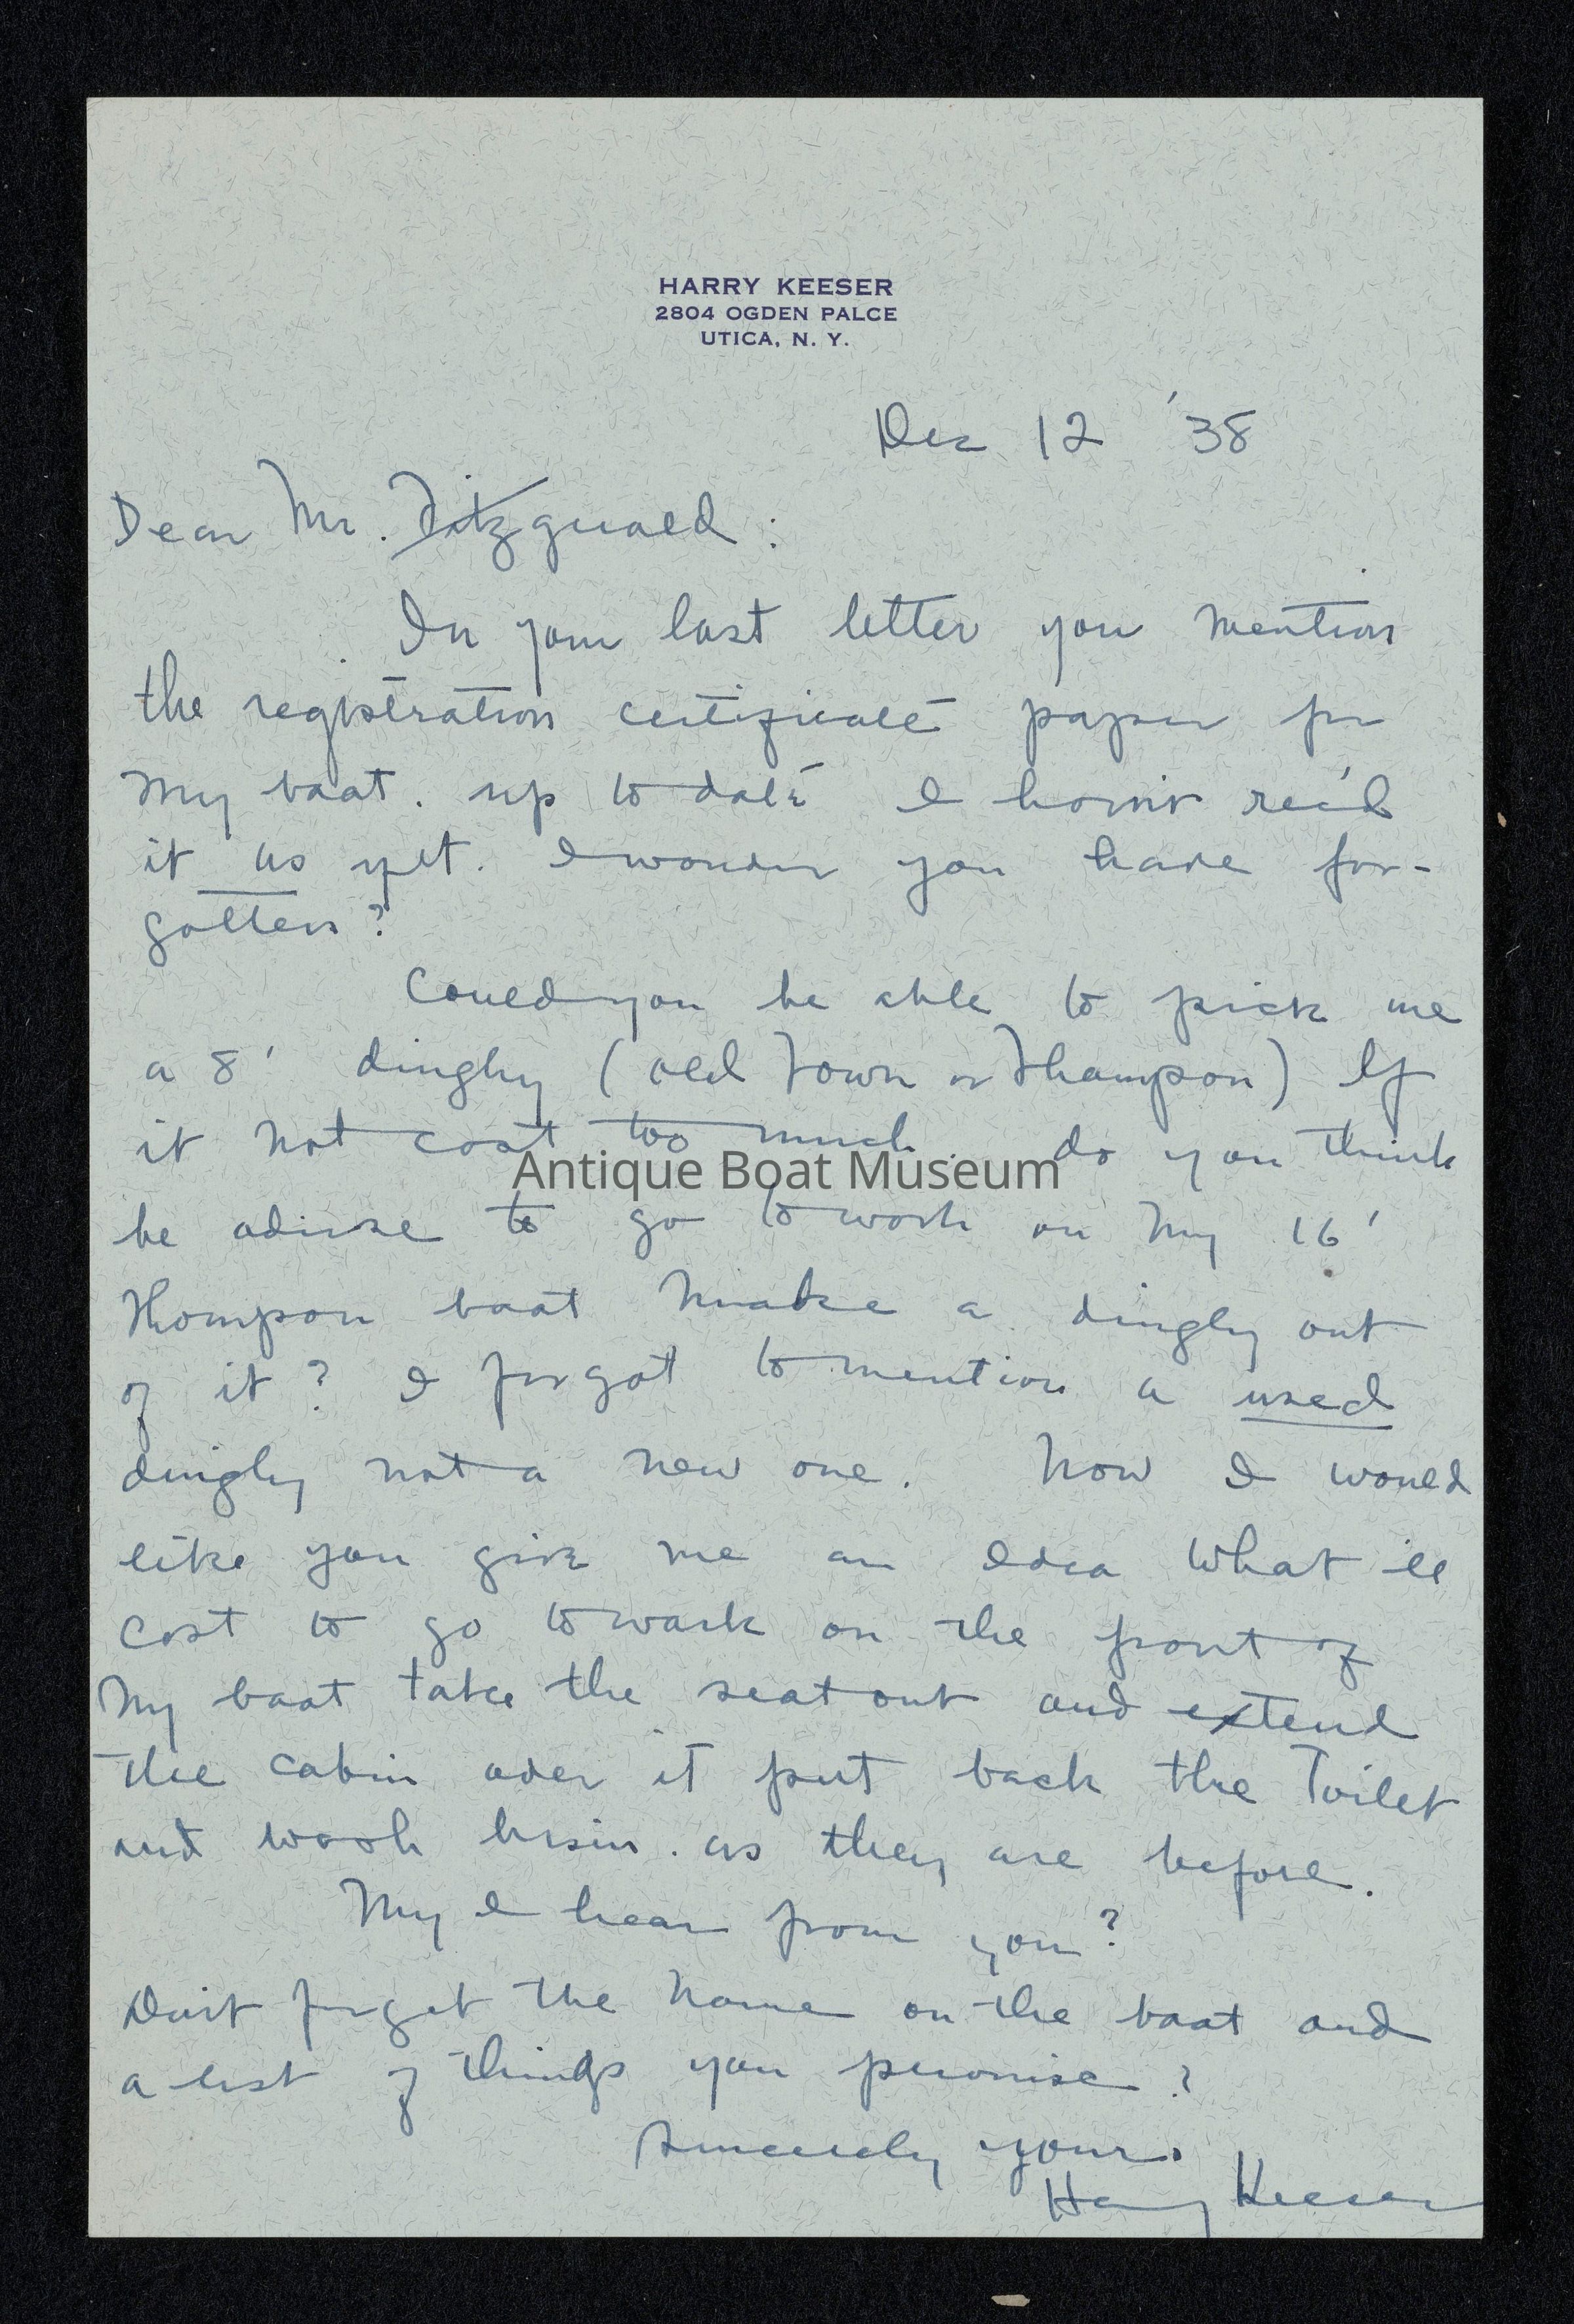 HARRY KEESER
2804 OGDEN PALCE
UTICA, N. Y.
Dec 12 '38
Dear Mr. Fitzgerald:
In your last letter you mention
the registration certificate paper for
my boat. up to date I haven't rec'd
it as yet. I wonder you have for-
gotten?
Could you be able to pick me
a 8' dinghy (old Town or Thompson) If
it not cost too much. do you think
Antique Boat Museum
be advise to go to work on my 16'
Thompson boat make a dinghy out
of it? I forgot to mention a used
dinghy not a new one. Now I would
like you give me an idea what ill
cost to go to work on the front of
my boat take the seat out and extend
the cabin over it put back the Toilet
and wash basin. as they are before.
My I hear from you?
Don't forget the name on the boat and
a list of things you promise?
Sincerely yours.
Harry Keeser